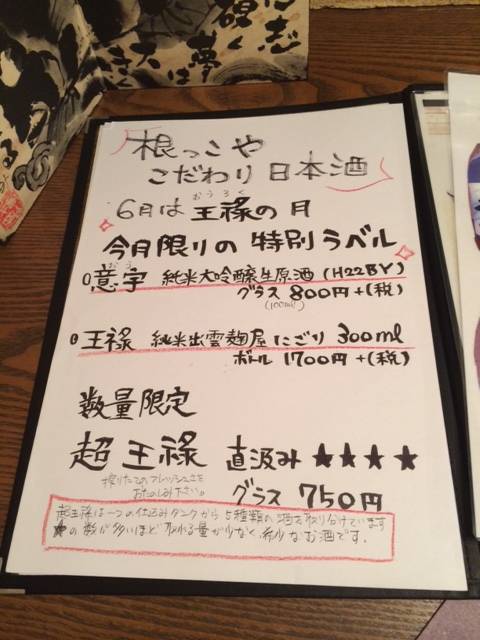 根っこや
こだわり日本酒
おうろく
6月は王祿の月
今月限りの特別ラベル
おう
意宇 純米大吟醸生原酒(H22BY)
グラス 800円+(税)
(100ml)
王祿 純米出雲麹屋にごり 300ml
ボトル 1700円+(税)
数量限定
超王祿 直汲み ★★★★
搾りたてのフレッシュさを
お楽しみ下さい。
グラス 750円
超王祿は一つの仕込みタンクから5種類の酒を取り分けています
★の数が多いほど取れる量が少なく、希少なお酒です。